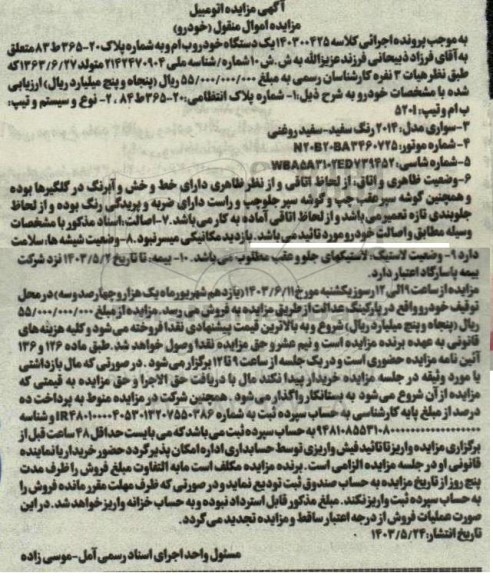 آگهی مزایده اتومبیل
مزایده اموال منقول (خودرو)
به موجب پرونده اجرائی کلاسه ۱۴۰۳۰۰۴۲۵ یک دستگاه خودرو ب ام و به شماره پلاک ۲۰-۳۶۵ ط ۸۳ متعلق
به آقای فرزاد ذبیحانی فرزند عزیزالله به ش.ش ۱۰ شماره / شناسه ملی ۲۱۴۲۴۷۰۹۰۴ متولد ۱۳۶۳/۶/۲۷ که
طبق نظر هیات ۳ نفره کارشناسان رسمی به مبلغ ۵۵/۰۰۰/۰۰۰/۰۰۰ ریال (پنجاه و پنج میلیارد ریال) ارزیابی
شده با مشخصات خودرو به شرح ذیل: ۱- شماره پلاک انتظامی: ۲۰-۳۶۵ ط ۸۴ .۲- نوع و سیستم و تیپ:
ب ام و تیپ: ۵۲۰i
۳-سواری مدل: ۲۰۱۴ رنگ سفید-سفید روغنی
۴-شماره موتور: N۲۰B۲۰BA۳۴۶۰۷۲۵
۵-شماره شاسی: WBA۵A۳۱۰۲ED۷۳۹۴۵۲
۶-وضعیت ظاهری و اتاق: از لحاظ اتاقی و از نظر ظاهری دارای خط و خش و آبرنگ در گلگیرها بوده
و همچنین گوشه سپر عقب چپ و گوشه سپر جلو چپ و راست دارای ضربه و پریدگی رنگ بوده و از لحاظ
جلوبندی تازه تعمیر می باشد و از لحاظ اتاقی آماده به کار می باشد. ۷-اصالت: اسناد مذکور با مشخصات
وسیله مطابق و اصالت خودرو مورد تائید می باشد. بازدید مکانیکی میسر نبود. ۸-وضعیت شیشه ها: سلامت
دارد ۹- وضعیت لاستیک: لاستیکهای جلو و عقب مطلوب می باشد. ۱۰- بیمه: تا تاریخ ۱۴۰۳/۵/۲ نزد شرکت
بیمه پاسارگاد اعتبار دارد.
مزایده از ساعت ۹ الی ۱۲ رسوز یکشنبه مورخ ۱۴۰۳/۶/۱۱ (یازدهم شهریور ماه یک هزار و چهار صد و سه) در محل
توقیف خودرو واقع در پارکینگ عدالت از طریق مزایده به فروش می رسد. مزایده از مبلغ ۵۵/۰۰۰/۰۰۰/۰۰۰
ریال (پنجاه و پنج میلیارد ریال) شروع و به بالاترین قیمت پیشنهادی نقدا فروخته می شود و کلیه هزینه های
قانونی به عهده برنده مزایده است و نیم عشر و حق مزایده نقدا وصول خواهد شد. طبق ماده ۱۲۶ و ۱۳۶
آئین نامه مزایده حضوری است و در یک جلسه از ساعت ۹ تا ۱۲ برگزار می شود. در صورتی که مال بازداشتی
یا مورد وثیقه در جلسه مزایده خریدار پیدا نکند مال با دریافت حق الاجرا و حق مزایده به قیمتی که
مزایده از آن شروع می شود به بستانکار واگذار می شود. همچنین شرکت در مزایده منوط به پرداخت ده
درصد از مبلغ پایه کارشناسی به حساب سپرده ثبت به شماره
به حساب سپرده ثبت می باشد که می بایست حداقل ۴۸ ساعت قبل از
برگزاری مزایده واریز تا تائید فیش واریزی توسط حسابداری اداره امکان پذیر گردد حضور خریدار یا نماینده
قانونی او در جلسه مزایده الزامی است. برنده مزایده مکلف است مابه التفاوت مبلغ فروش را ظرف مدت
پنج روز از تاریخ مزایده به حساب صندوق ثبت تودیع نماید و در صورتی که ظرف مهلت مقرر مانده فروش را
به حساب سپرده ثبت واریز نکند. مبلغ مذکور قابل استرداد نبوده و به حساب خزانه واریز خواهد شد. در این
صورت عملیات فروش از درجه اعتبار ساقط و مزایده تجدید می گردد.
تاریخ انتشار: ۱۴۰۳/۵/۲۴
مسئول واحد اجرای اسناد رسمی آمل-موسی زاده